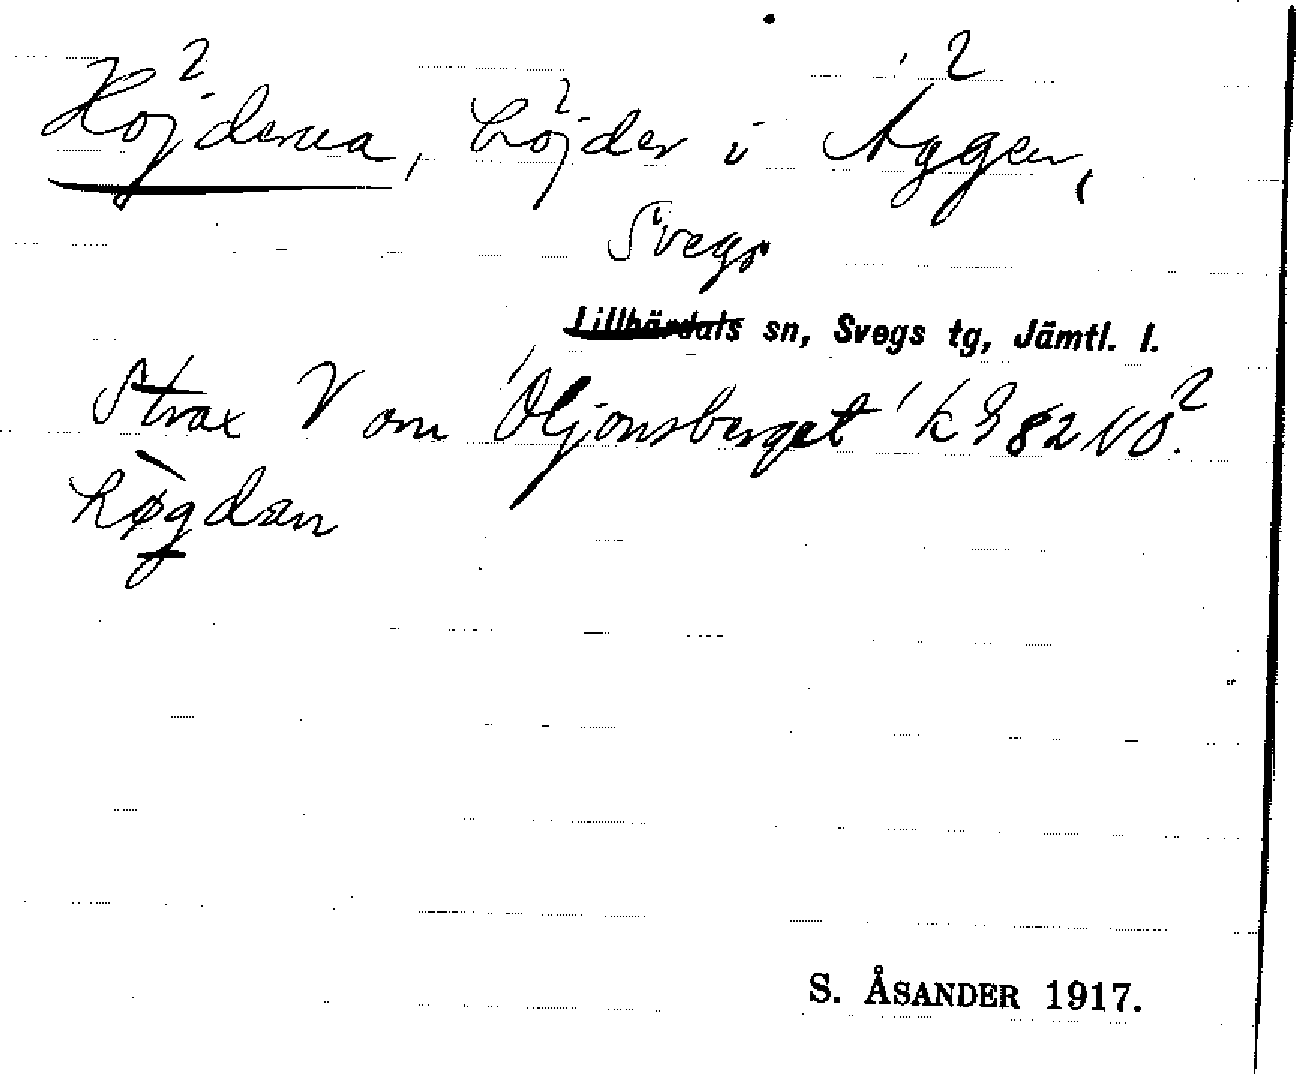 Höjderna, höjder i Äggen,
Svegs
Lillhärdals sn, Svegs tg, Jämtl. l.
Strax V om Oljonsberget k g 82 NO.
S. ÅSANDER 1917.